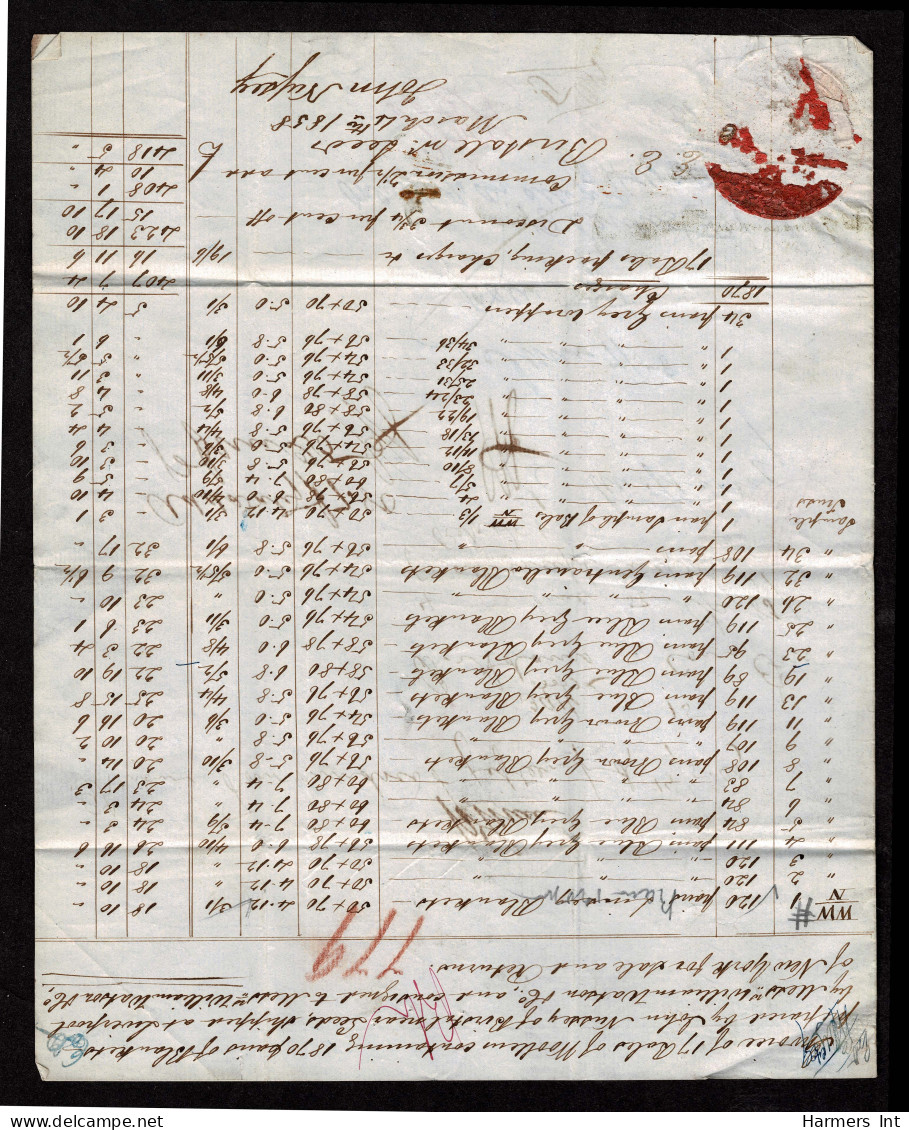 Invoice of 17 Bales of Woollens containing 1870 pairs of Blankets
prepared by John Nussey of Birstal near Leeds, shipped at Liverpool
by Messrs William Watson & Co, and consigned to Messrs William Watson & Co,
of New York for Sale and Returns
779
WW
N
1 120 pairs Blankets 50 + 70 4.12 3/1 18 10 -
" 2 120 " " 50 + 70 4.12 " 18 10 -
" 3 120 " " 50 + 70 4.12 " 18 10 -
" 4 111 pairs Blue Grey Blankets 56 + 78 6.8 4/10 26 16 6
" 5 84 pairs Blue Grey Blankets 60 + 80 7.4 5/9 24 3 -
" 6 84 " " 60 + 80 7.4 " 24 3 -
" 7 83 " " 60 + 80 7.4 " 23 17 3
" 8 108 pairs Brown Grey Blankets 56 + 76 5.8 3/10 20 14 -
" 9 107 " " 56 + 76 5.8 " 20 10 2
" 11 119 pairs Brown Grey Blankets 54 + 76 5.0 3/6 20 16 6
" 13 119 pairs Blue Grey Blankets 56 + 76 5.8 4/4 25 15 8
" 19 89 pairs Blue Grey Blankets 58 + 80 6.8 5/2 22 19 10
" 23 95 pairs Blue Grey Blankets 58 + 78 6.0 4/8 22 3 4
" 25 119 pairs Blue Grey Blankets 54 + 76 5.0 3/11 23 6 1
" 26 120 " " 54 + 76 5.0 " 23 10 -
" 32 119 pairs Gentianella Blankets 54 + 76 5.0 5/5½ 32 9 6½
" 34 108 pairs " " 56 + 76 5.8 6/1 32 17 -
Sample Truss 1 pair Sample of Bales WW N 1/3 50 70 4.12 3/1 - 3 1
1 " " " 4 56 78 6.8 4/10 - 4 10
1 " " " 5/7 60 80 7.4 5/9 - 5 9
1 " " " 8/10 56 + 76 5.8 3/10 - 3 10
1 " " " 11/12 54 + 76 5.0 3/6 - 3 6
1 " " " 13/18 56 + 76 5.8 4/4 - 4 4
1 " " " 19/22 58 + 80 6.8 5/2 - 5 2
1 " " " 23/24 58 + 78 6.0 4/8 - 4 8
1 " " " 25/31 54 + 76 5.0 3/11 - 3 11
1 " " " 32/33 54 + 76 5.0 5/5½ " 5 5½
1 " " " 34/36 56 + 76 5.8 6/1 - 6 1
34 pairs Grey Wrappers 50 + 70 5.0 3/1 5 4 10
1870 407 7 4
Charges
17 Bales packing, Charges &c 19/6 16 11 6
423 18 10
Discount 3¾ per cent off 15 17 10
408 1 -
Commission 2½ per cent add 10 4 "
£ 418 5 "
E. E. Birstall nr. Leeds
March 4th 1858
John Nussey
Harmers Int